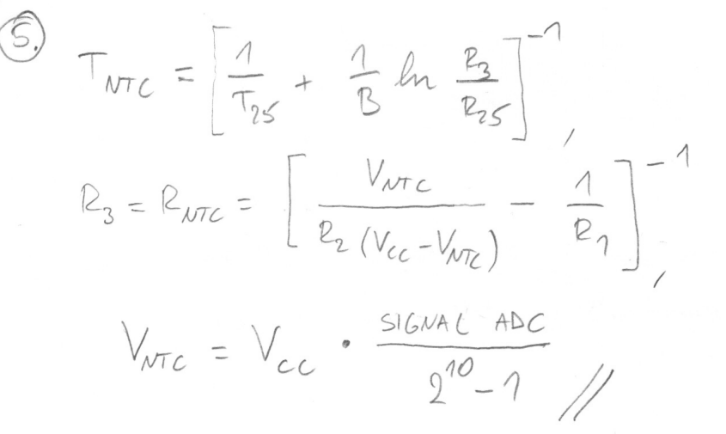 5.
T_NTC = [ 1/T_25 + 1/B ln R_3/R_25 ]^-1 ,
R_3 = R_NTC = [ V_NTC / R_2 (V_CC - V_NTC) - 1/R_1 ]^-1 ,
V_NTC = V_CC · SIGNAL ADC / 2^10 - 1 //